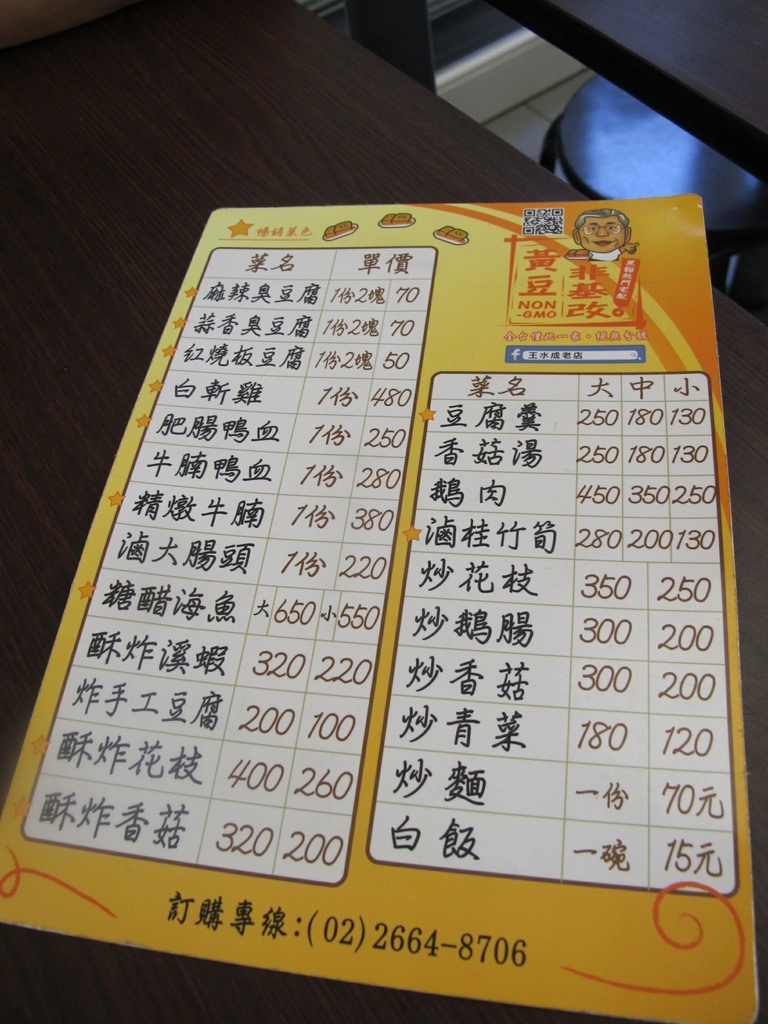 暢銷菜色
菜名 單價
麻辣臭豆腐 1份2塊 70
蒜香臭豆腐 1份2塊 70
紅燒板豆腐 1份2塊 50
白斬雞 1份 480
肥腸鴨血 1份 250
牛腩鴨血 1份 280
精燉牛腩 1份 380
滷大腸頭 1份 220
糖醋海魚 大650 小550
酥炸溪蝦 320 220
炸手工豆腐 200 100
酥炸花枝 400 260
酥炸香菇 320 200
黃豆
NON
-GMO
非基改
黑貓熱門宅配
全台僅此一家·絕無分號
f 王水成老店
菜名 大 中 小
豆腐羹 250 180 130
香菇湯 250 180 130
鵝肉 450 350 250
滷桂竹筍 280 200 130
炒花枝 350 250
炒鵝腸 300 200
炒香菇 300 200
炒青菜 180 120
炒麵 一份 70元
白飯 一碗 15元
訂購專線:(02)2664-8706